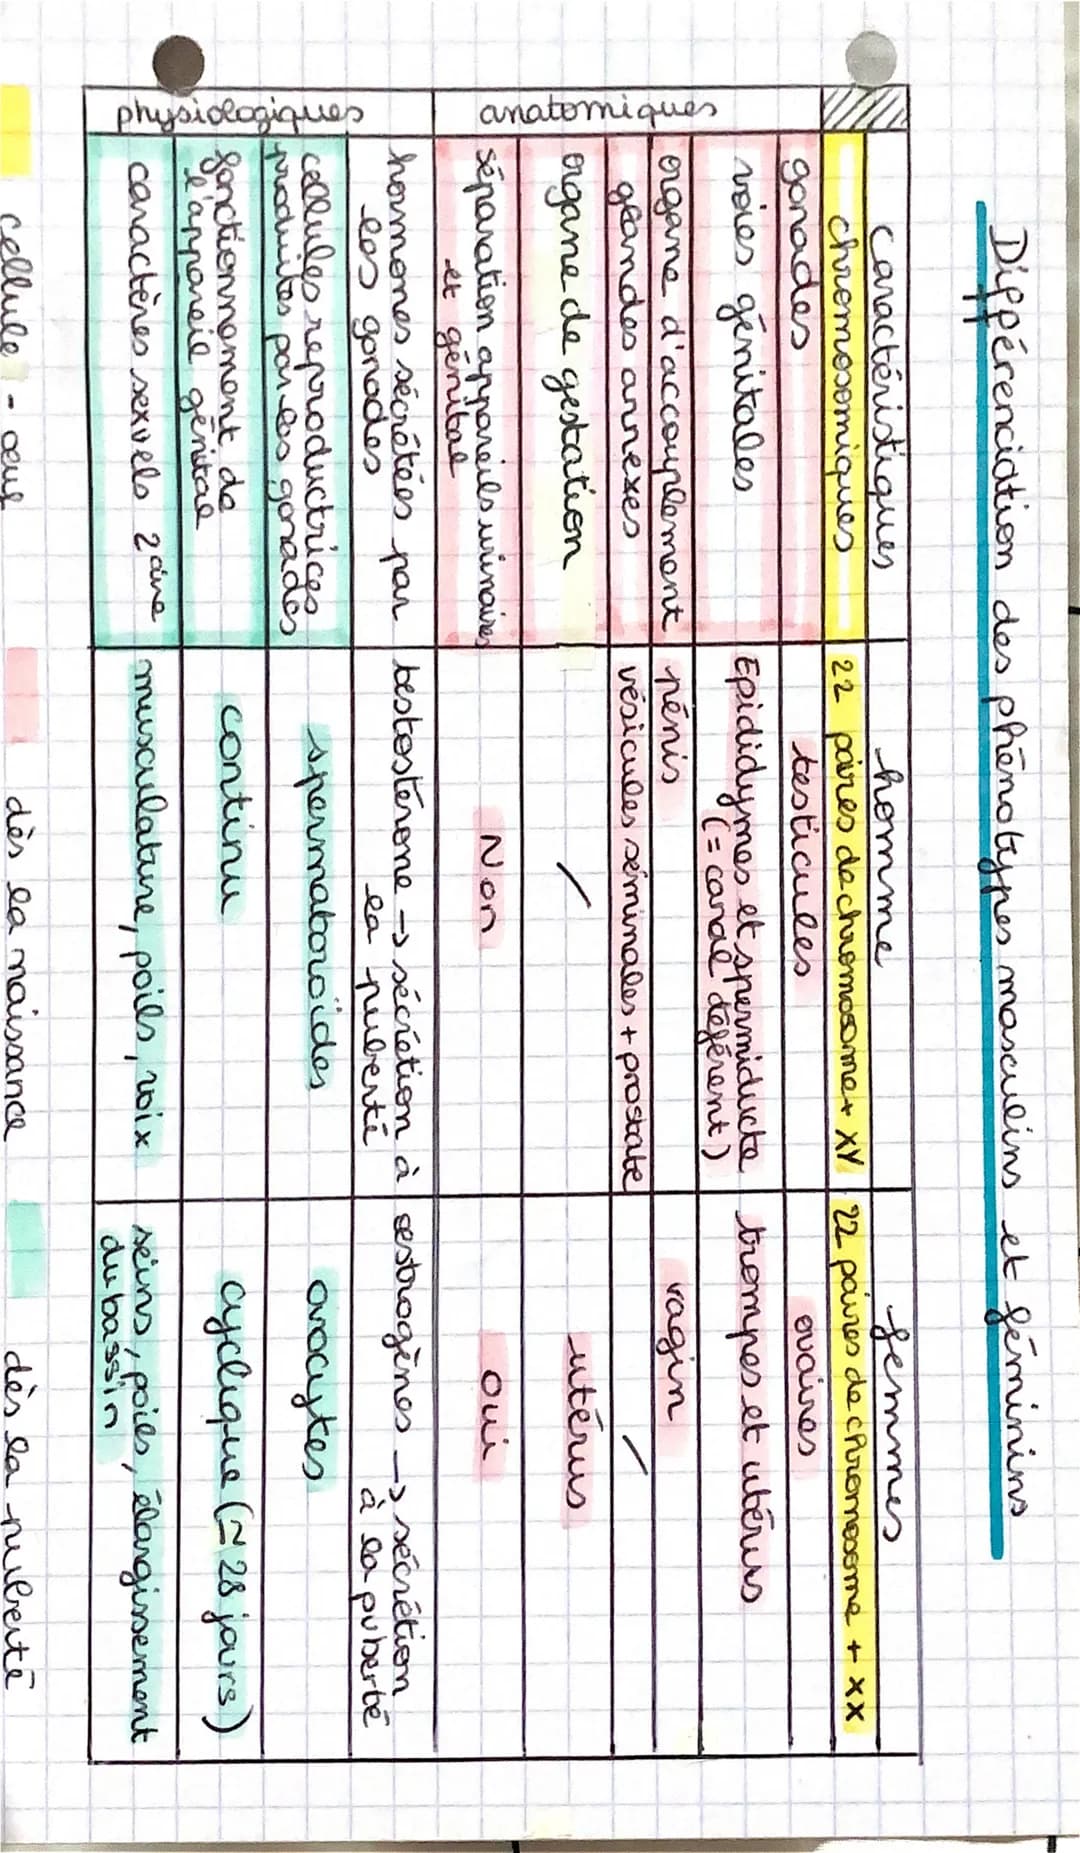 Différenciation des phénotypes masculins et féminins
caractéristiques homme femmes
chromosomiques 22 paires de chromosome + XY 22 paires de chromosome + XX
anatomiques
gonades testicules ovaires
voies génitales Epididymes et spermiducte trompes et utérus
(= canal déférent)
organe d'accouplement pénis vagin
glandes annexes vésicules séminales + prostate /
organe de gestation / utérus
séparation appareils urinaires Non oui
et génital
physiologiques
hormones sécrétées par testostérone → sécrétion à œstrogènes → sécrétion
les gonades la puberté à la puberté
cellules reproductrices spermatozoïdes ovocytes
produites par les gonades
fonctionnement de continu cyclique (≃ 28 jours)
l'appareil génital
caractères sexuels 2aire musculature, poils, voix seins, poils, élargissement
du bassin
cellule-œuf dès la naissance dès la puberté